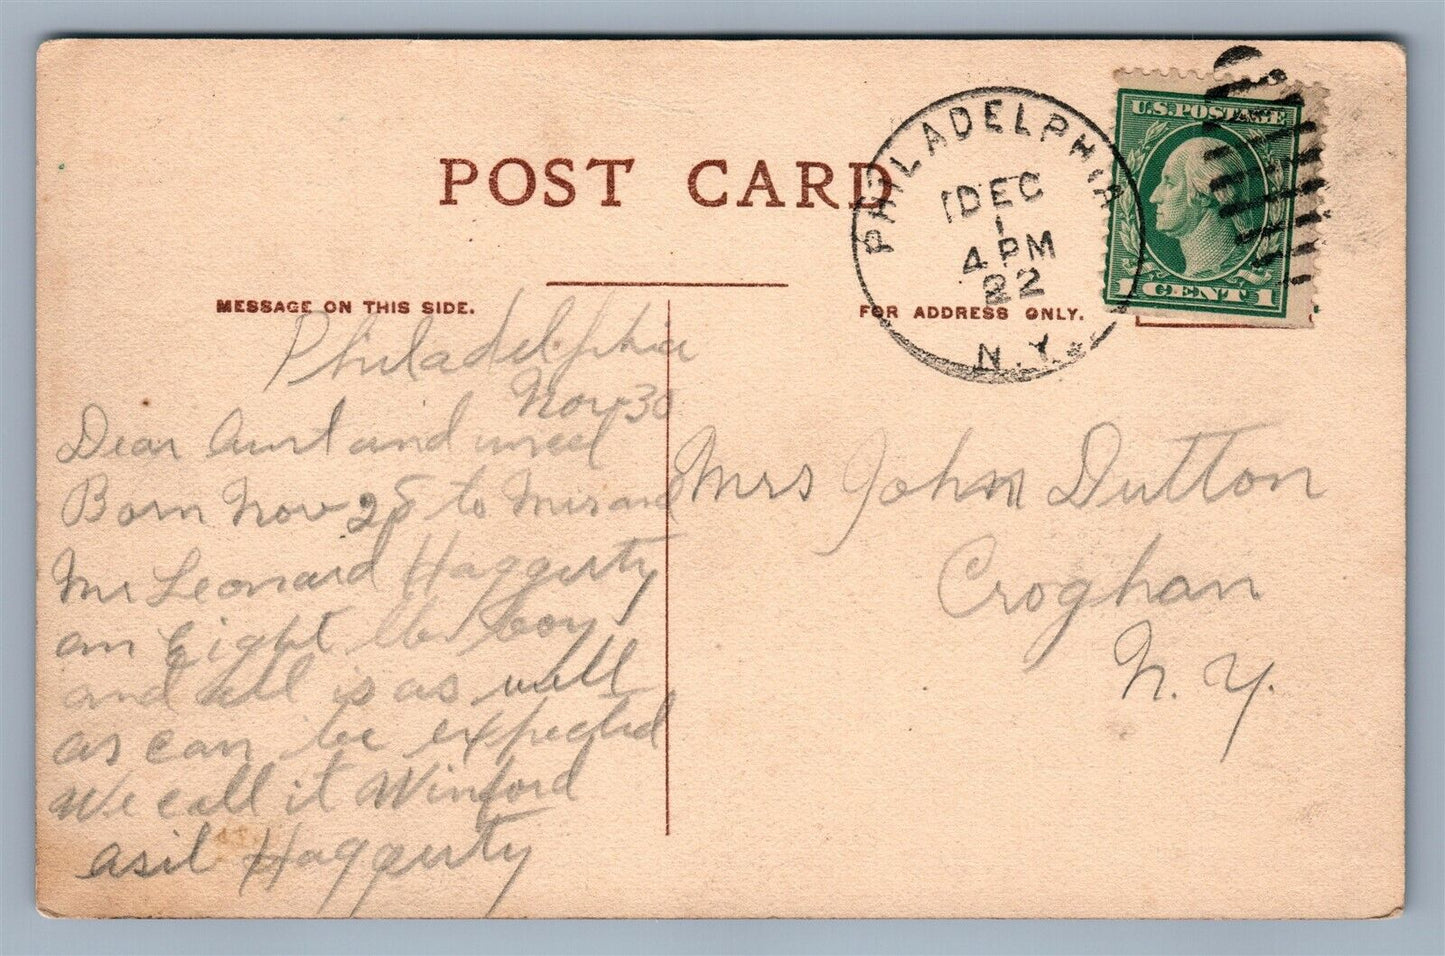 POST CARD
PHILADELPHIA
DEC
1
4 PM
22
N.Y.
U.S. POSTAGE
1 CENT 1
MESSAGE ON THIS SIDE.
FOR ADDRESS ONLY.
Philadelphia
Nov 30
Dear Aunt and
Born Nov 25 to Mrs and
Mr Leonard Haggerty
an Eight lb boy
and all is as well
as can be expected
We call it Winford
asil Haggerty
Mrs John Dutton
Croghan
N. Y.